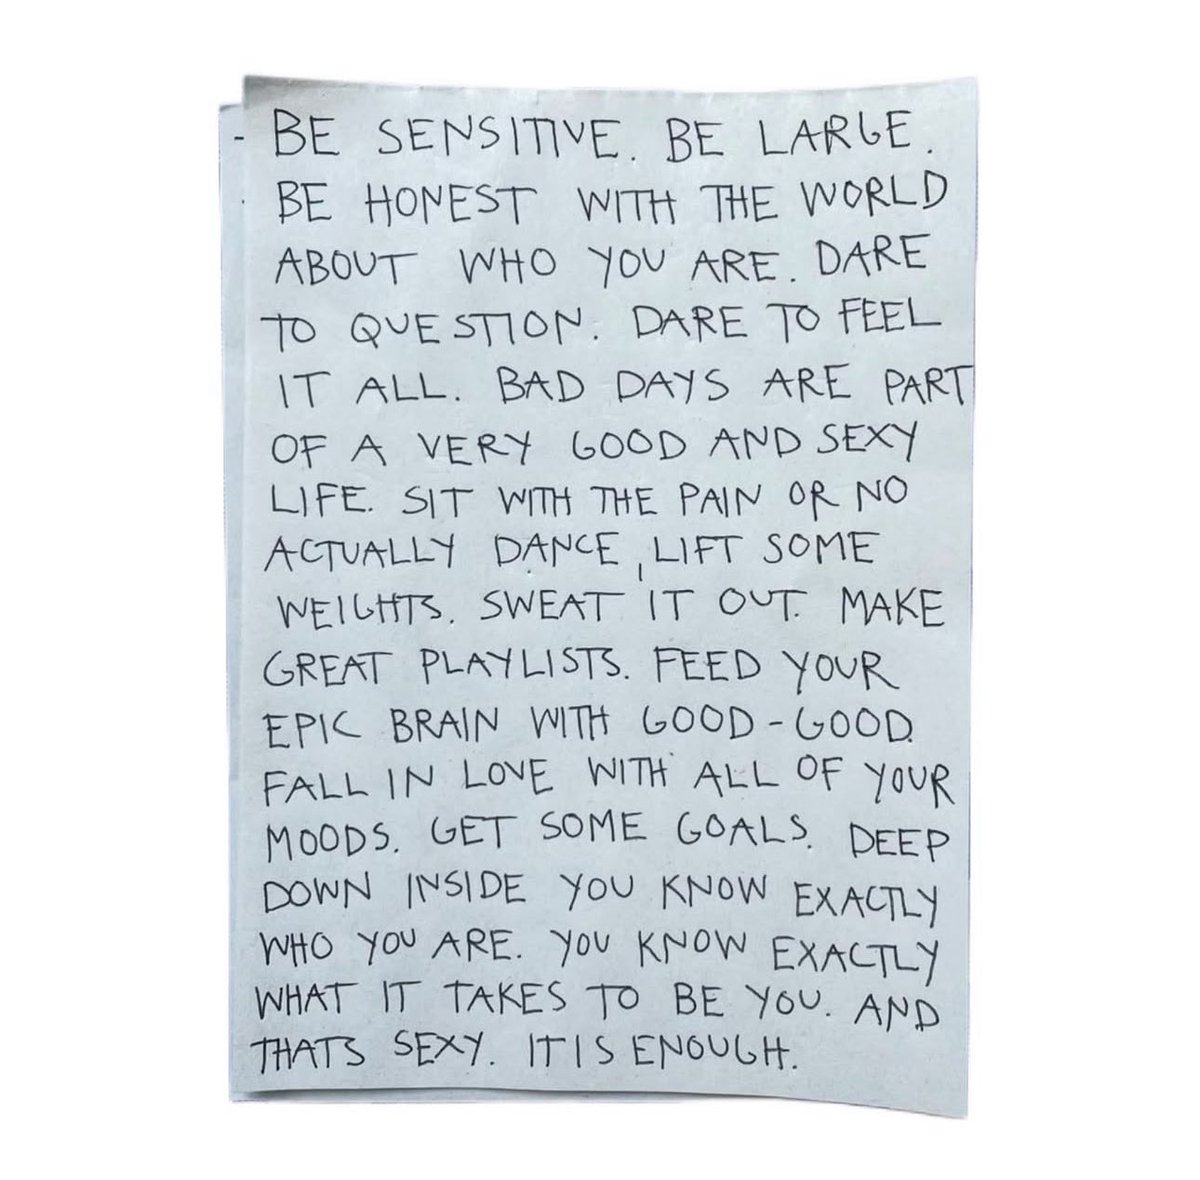 BE SENSITIVE. BE LARGE.
BE HONEST WITH THE WORLD
ABOUT WHO YOU ARE. DARE
TO QUESTION. DARE TO FEEL
IT ALL. BAD DAYS ARE PART
OF A VERY GOOD AND SEXY
LIFE. SIT WITH THE PAIN OR NO
ACTUALLY DANCE, LIFT SOME
WEIGHTS. SWEAT IT OUT. MAKE
GREAT PLAYLISTS. FEED YOUR
EPIC BRAIN WITH GOOD-GOOD.
FALL IN LOVE WITH ALL OF YOUR
MOODS. GET SOME GOALS. DEEP
DOWN INSIDE YOU KNOW EXACTLY
WHO YOU ARE. YOU KNOW EXACTLY
WHAT IT TAKES TO BE YOU. AND
THATS SEXY. IT IS ENOUGH.